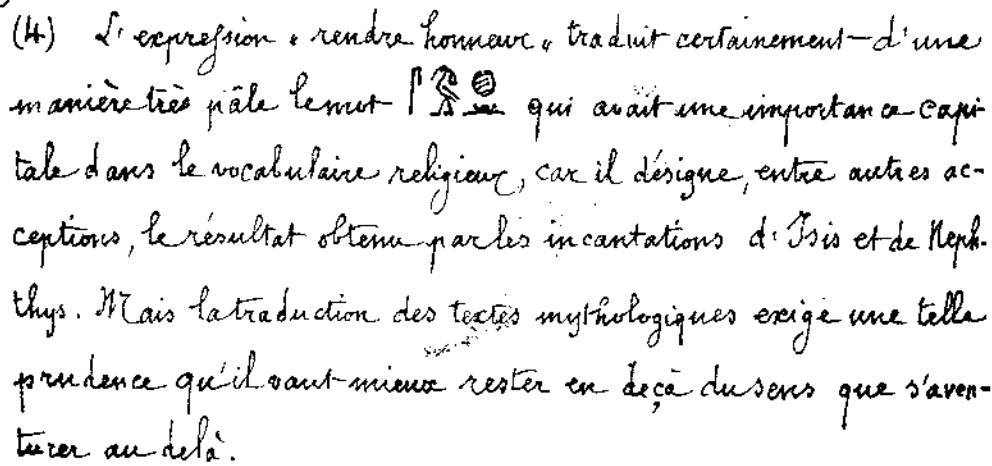 (4) L'expression « rendre honneur » traduit certainement d'une
manière très pâle le mot qui avait une importance capi-
tale dans le vocabulaire religieux, car il désigne, entre autres ac-
ceptions, le résultat obtenu par les incantations d'Isis et de Neph-
thys. Mais la traduction des textes mythologiques exige une telle
prudence qu'il vaut mieux rester en deçà du sens que s'aven-
turer au delà.